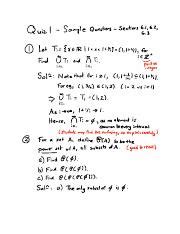 Quiz 1 - Sample Questions - Sections 6.1, 6.2, 6.3
① Let Tᵢ = {x∈ℝ | 1<x<1+1/i} = (1, 1+1/i), for i∈ℤ⁺
Find ⋃Tᵢ and ⋂Tᵢ.
Solⁿ: Note that for i≥1, (1, 1+1/i) ⊆ (1,2)
⋃Tᵢ = T₁ = (1,2).
As i→∞, 1+1/i → 1.
Hence, ⋂Tᵢ = ∅, as no element is
common to every interval
② For a set A, define 𝒫(A) to be the
power set of A, all subsets of A.
a) Find 𝒫(∅)
b) Find 𝒫(𝒫(∅))
c) Find 𝒫(𝒫(𝒫(∅))).
Solⁿ: a) The only subset of ∅ is ∅.